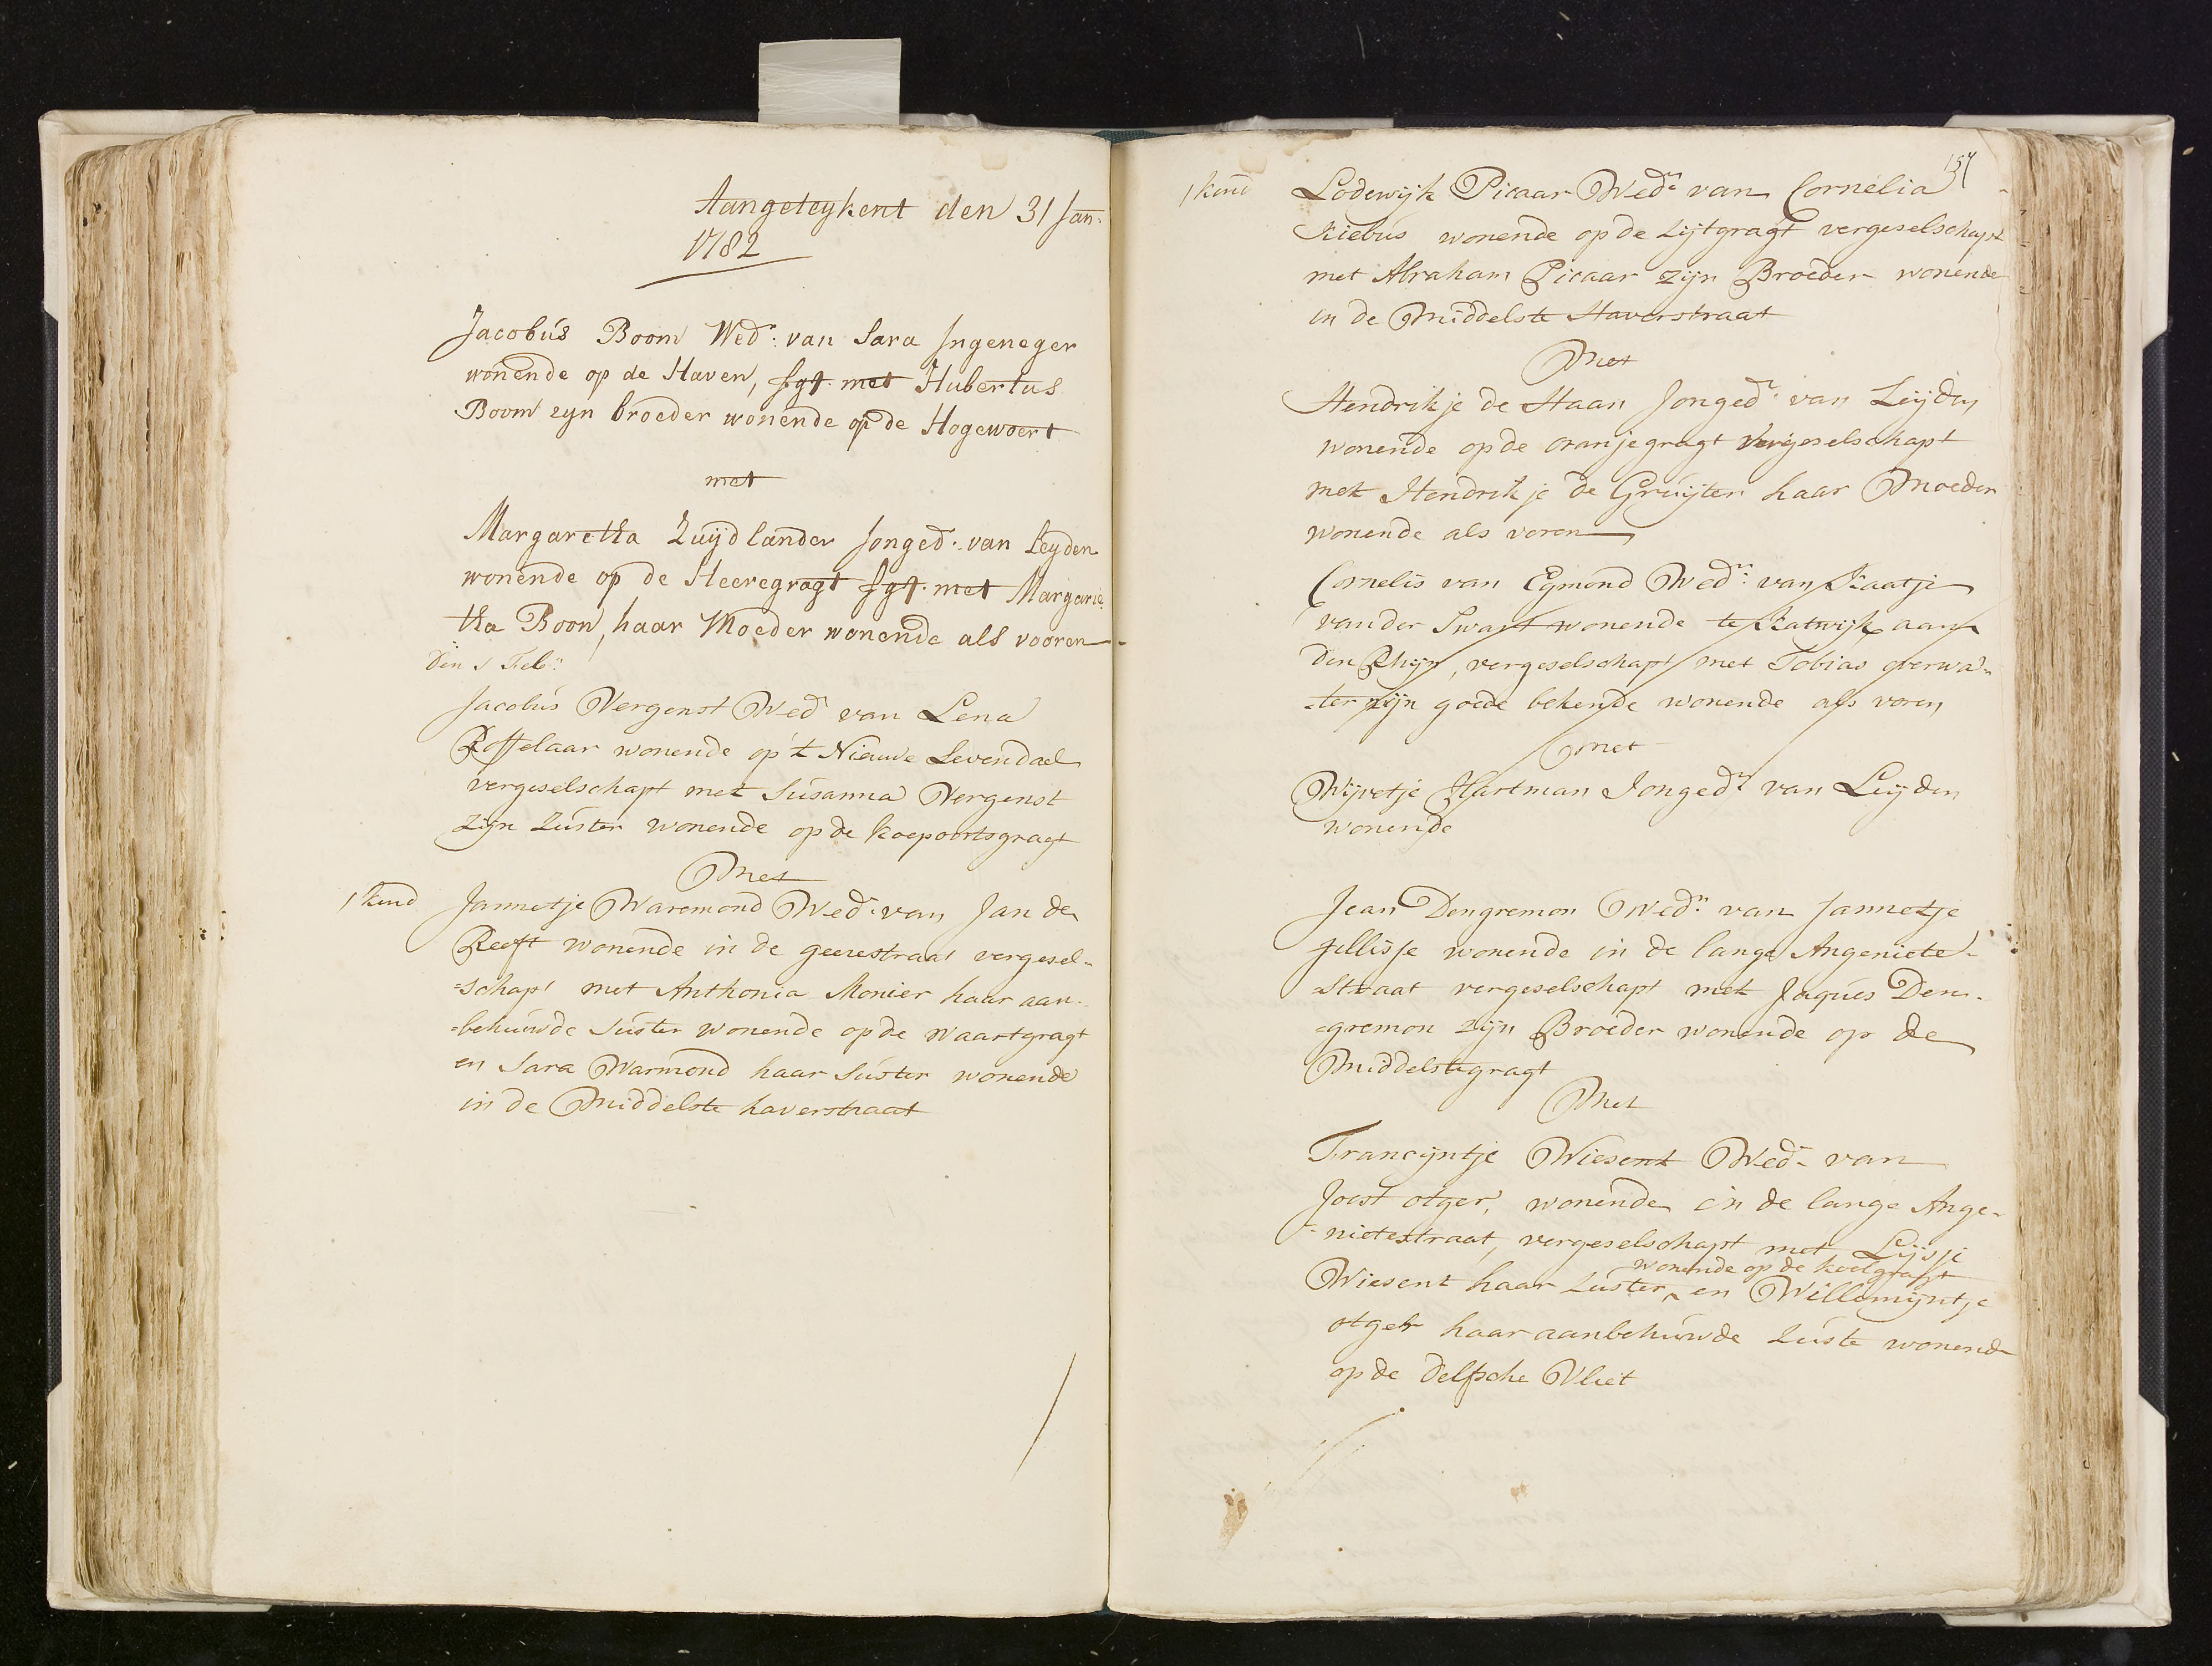 Aangeteykent den 31 Jan.
1782
Jacobus Boom Wedr. van Sara Ingeneger
wonende op de Haven, fgt. met Hubertus
Boom zyn broeder wonende op de Hogewoert
met
Margaretha Zuijdlander Jonged. van Leyden
wonende op de Heeregragt fgt. met Margarie
tha Boon, haar Moeder wonende als vooren
den 1 Feb.
Jacobus Vergenst Wedr van Lena
Roffelaar wonende op 't Nieuwe Levendael
vergeselschapt met Susanna Vergenst
Zijn Zuster wonende op de koepoortsgragt
Met
1 kend Jannetje Waremond Wed. van Jan de
Reeft wonende in de geerestraat vergesel-
=schapt met Anthonia Monier haar aan-
=behuwde Suster wonende op de Waartgragt
en Sara Warmond haar Suster wonende
in de Middelste haverstraat
157
1 kend Lodewijk Picaar Wedr van Cornelia
Kiebus wonende op de Zijtgragt vergeselschapt
met Abraham Picaar zijn Broeder wonende
in de Middelste Haverstraat
Met
Hendrikje de Haan Jonged. van Leijden
wonende op de oranjegragt Vergeselschapt
met Hendrikje de Gruijter haar Moeder
wonende als voren
Cornelis van Egmond Wedr. van Kaatje
van der Swart wonende te Katwijk aan
den Rhijn, vergeselschapt met Tobias overwa-
=ter zijn goede bekende wonende als voren
met
Wijvetje Hartman Jonged. van Leijden
wonende
Jean Dengremon Wedr. van Jannetje
Jillisse wonende in de lange Angeniete-
=Straat vergeselschapt met Jaques Den-
=gremon zijn Broeder wonende op de
Middelstegragt
Met
Francijntje Wiesent Wed. van
Joost otger, wonende in de lange Ange-
=nietestraat, vergeselschapt met Lijsje
wonende op de koelgragt
Wiesent haar Zuster en Willemijntje
otger haar aanbehuwde Zuste wonende
op de Delfsche Vliet